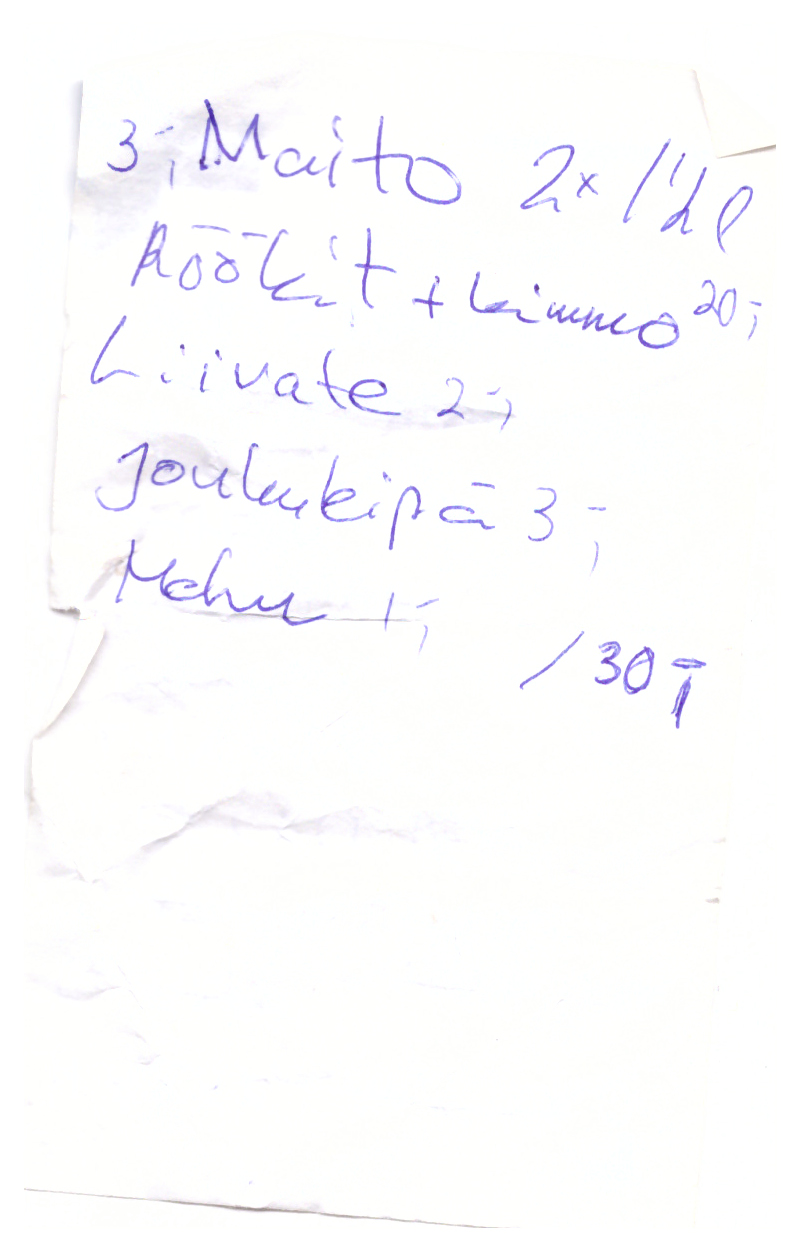 3-; Maito 2x 1½ l
Röökit + kimmo 20,-
Liivate 2-,
Joulukipä 3-,
Mehu 1-,
/30,-